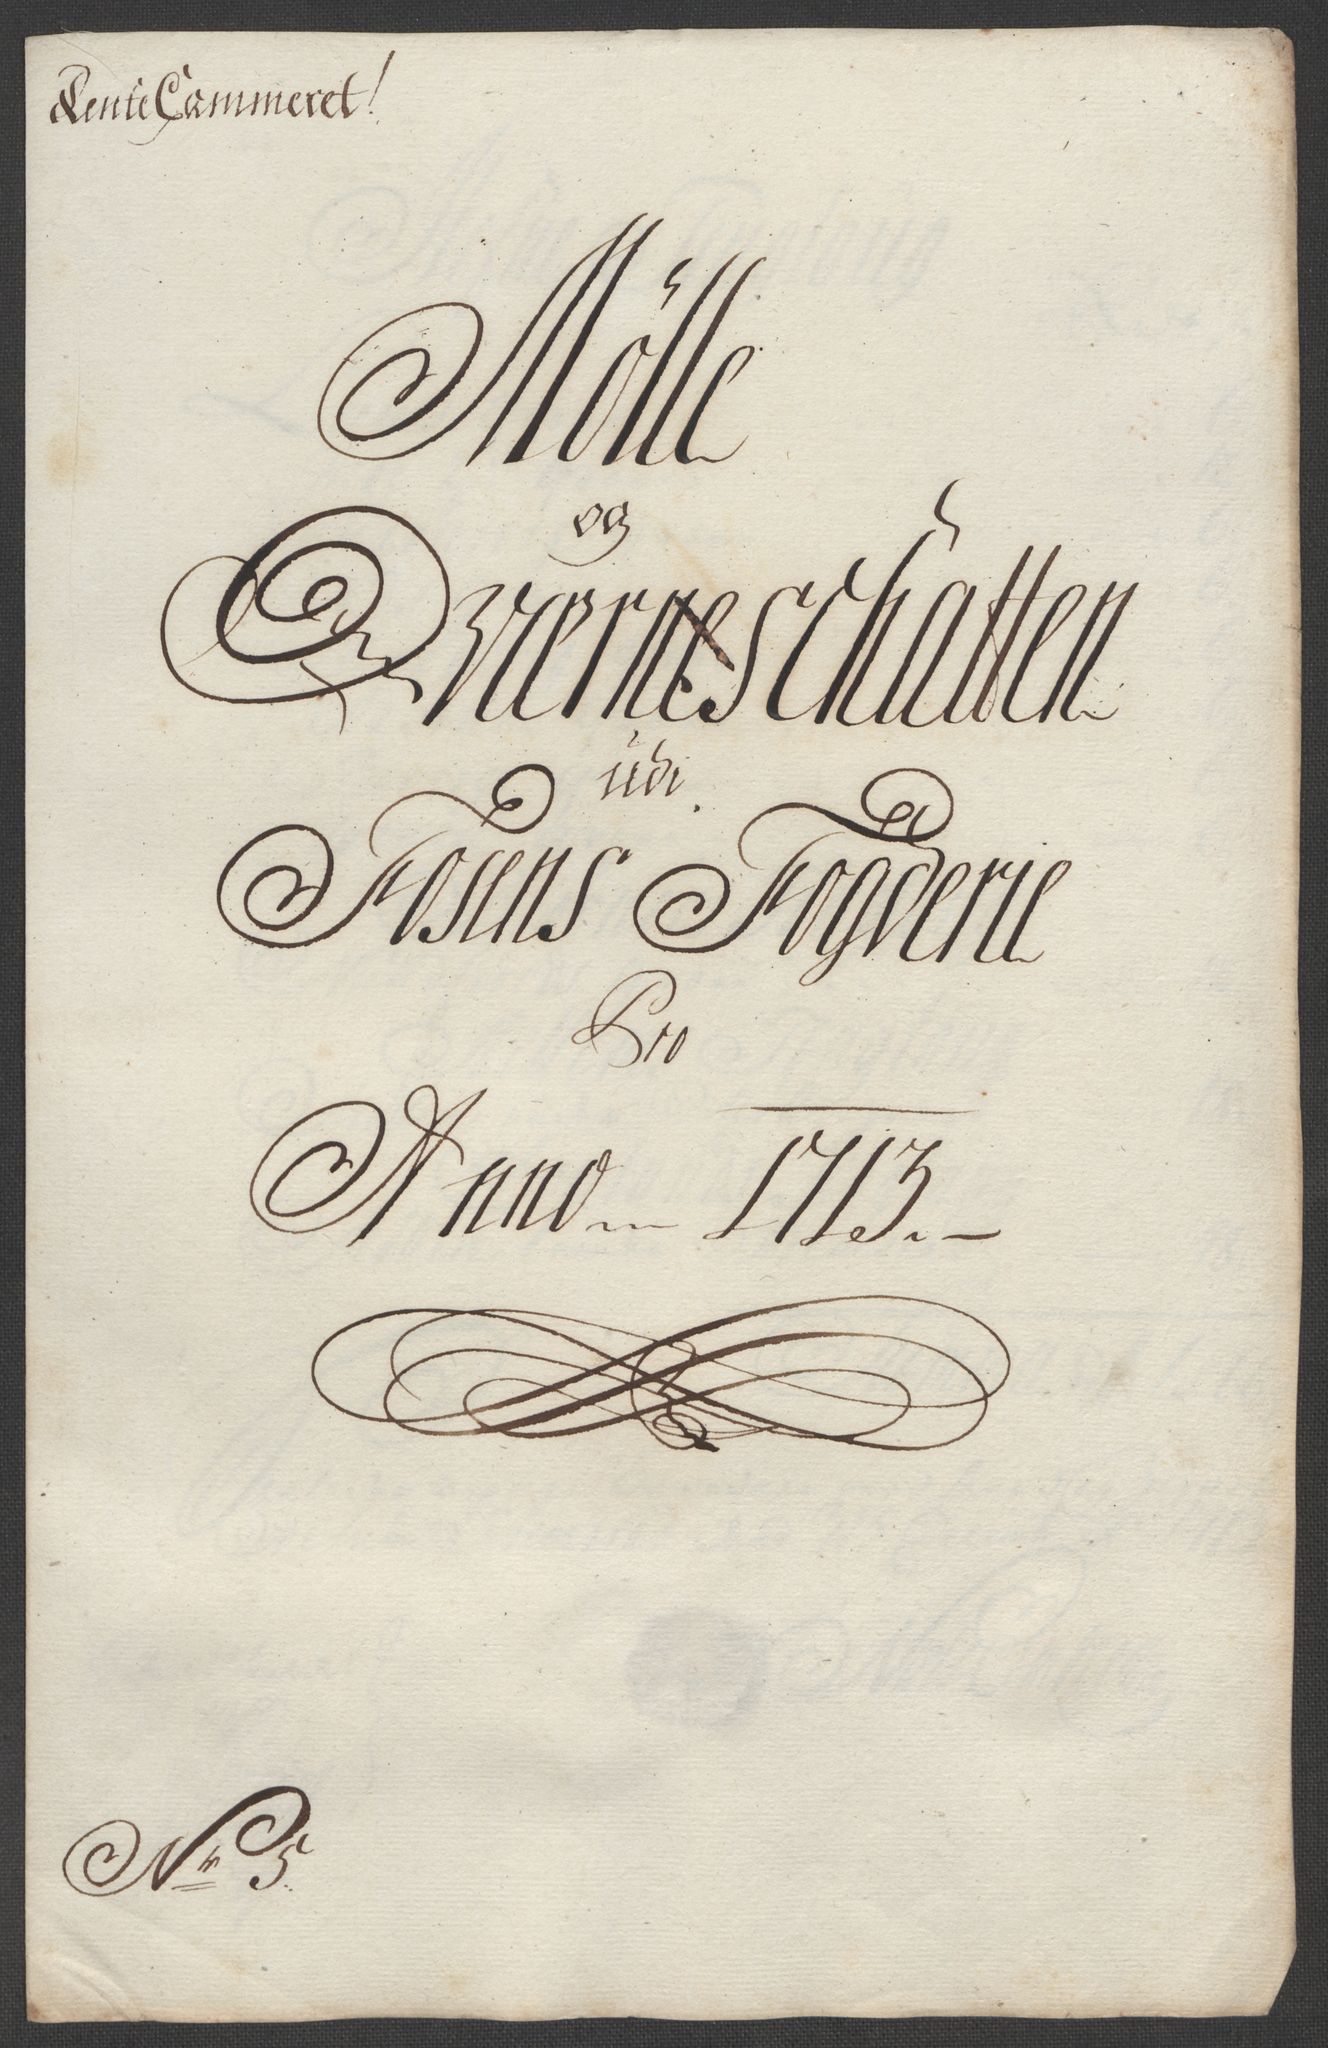 RenteCammeret!
Mölle
og
Qverneschatten
udi
Fosens Fogderie
Pro
Anno 1713.
Nr 5